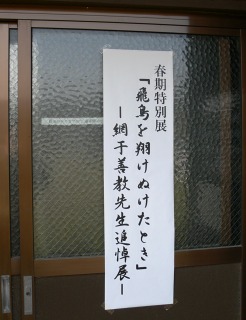 春期特別展
「飛鳥を翔けぬけたとき」
ー網干善教先生追悼展ー